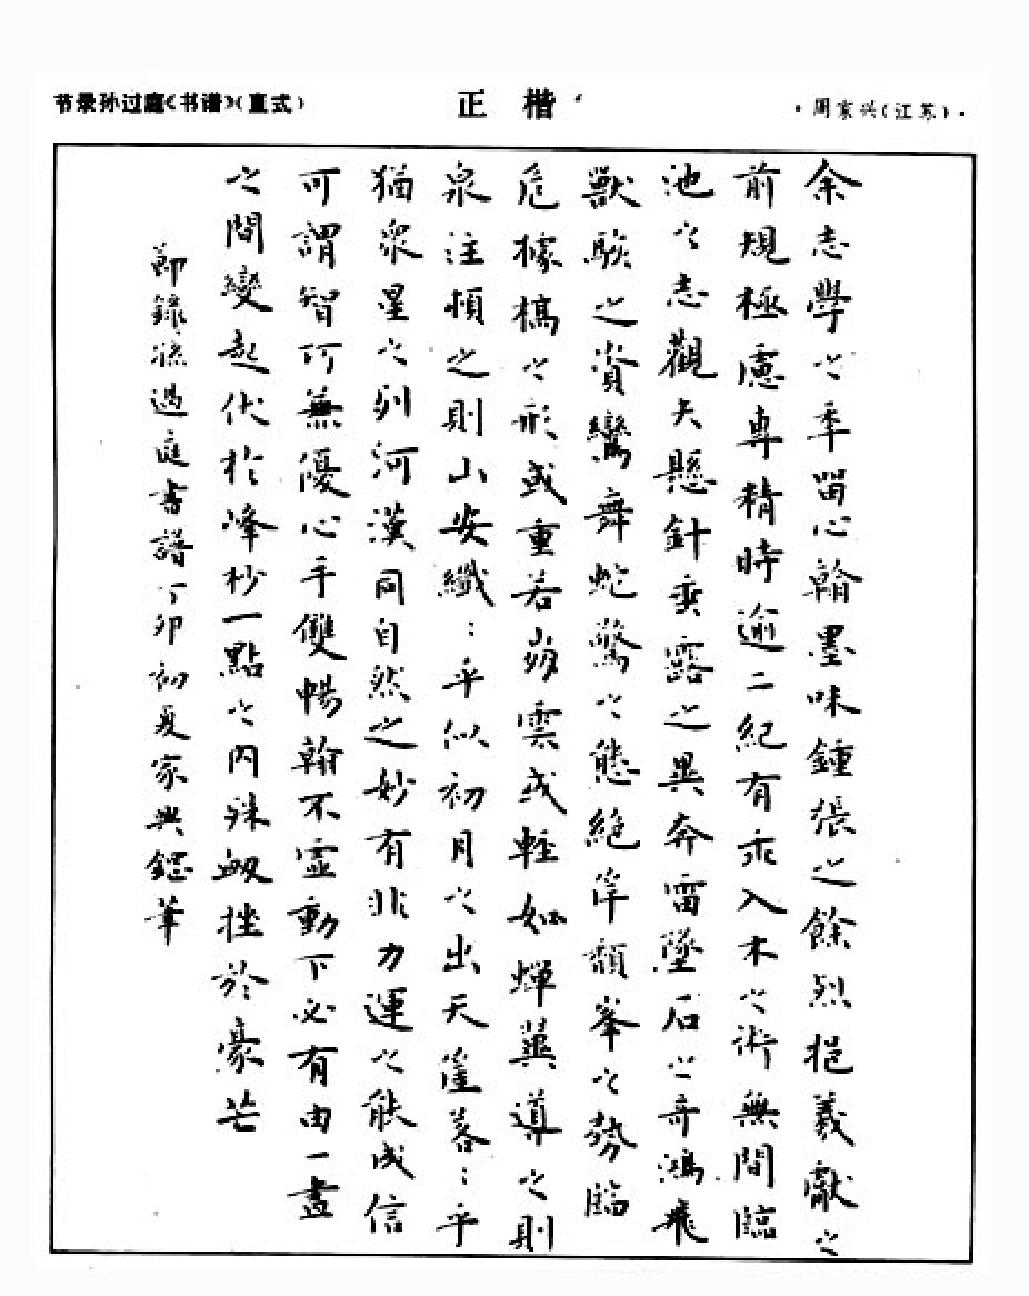 节录孙过庭《书谱》（直式）
正楷
·周家兴（江苏）·
余志學之季留心翰墨味鍾張之餘烈挹羲獻之
前規極慮專精時逾二紀有乖入木之術無間臨
池之志觀夫懸針垂露之異奔雷墜石之奇鴻飛
獸駭之資鸞舞蛇驚之態絕岸頹峯之勢臨
危據槁之形或重若崩雲或輕如蟬翼導之則
泉注頓之則山安纖：乎似初月之出天崖落：乎
猶衆星之列河漢同自然之妙有非力運之能成信
可謂智巧兼優心手雙暢翰不虛動下必有由一畫
之間變起伏於峰杪一點之内殊衄挫於豪芒
節錄孫過庭書譜丁卯初夏家興鋼筆